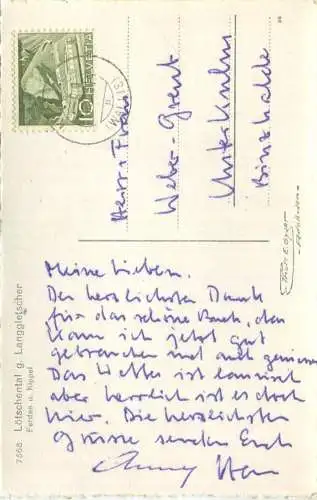 HELVETIA
10
Herr u. Frau
Weber-Grent
Unterkulm
Binzhalde
Meine Lieben.
Der herzlichsten Dank
für das schöne Buch, den
kann ich jetzt gut
gebrauchen und auch geniessen
Das Wetter ist launisch
aber herrlich ist es doch
hier. Die herzlichsten
Grüsse senden Euch
7668 Lötschental g. Langgletscher
Ferden u. Kippel